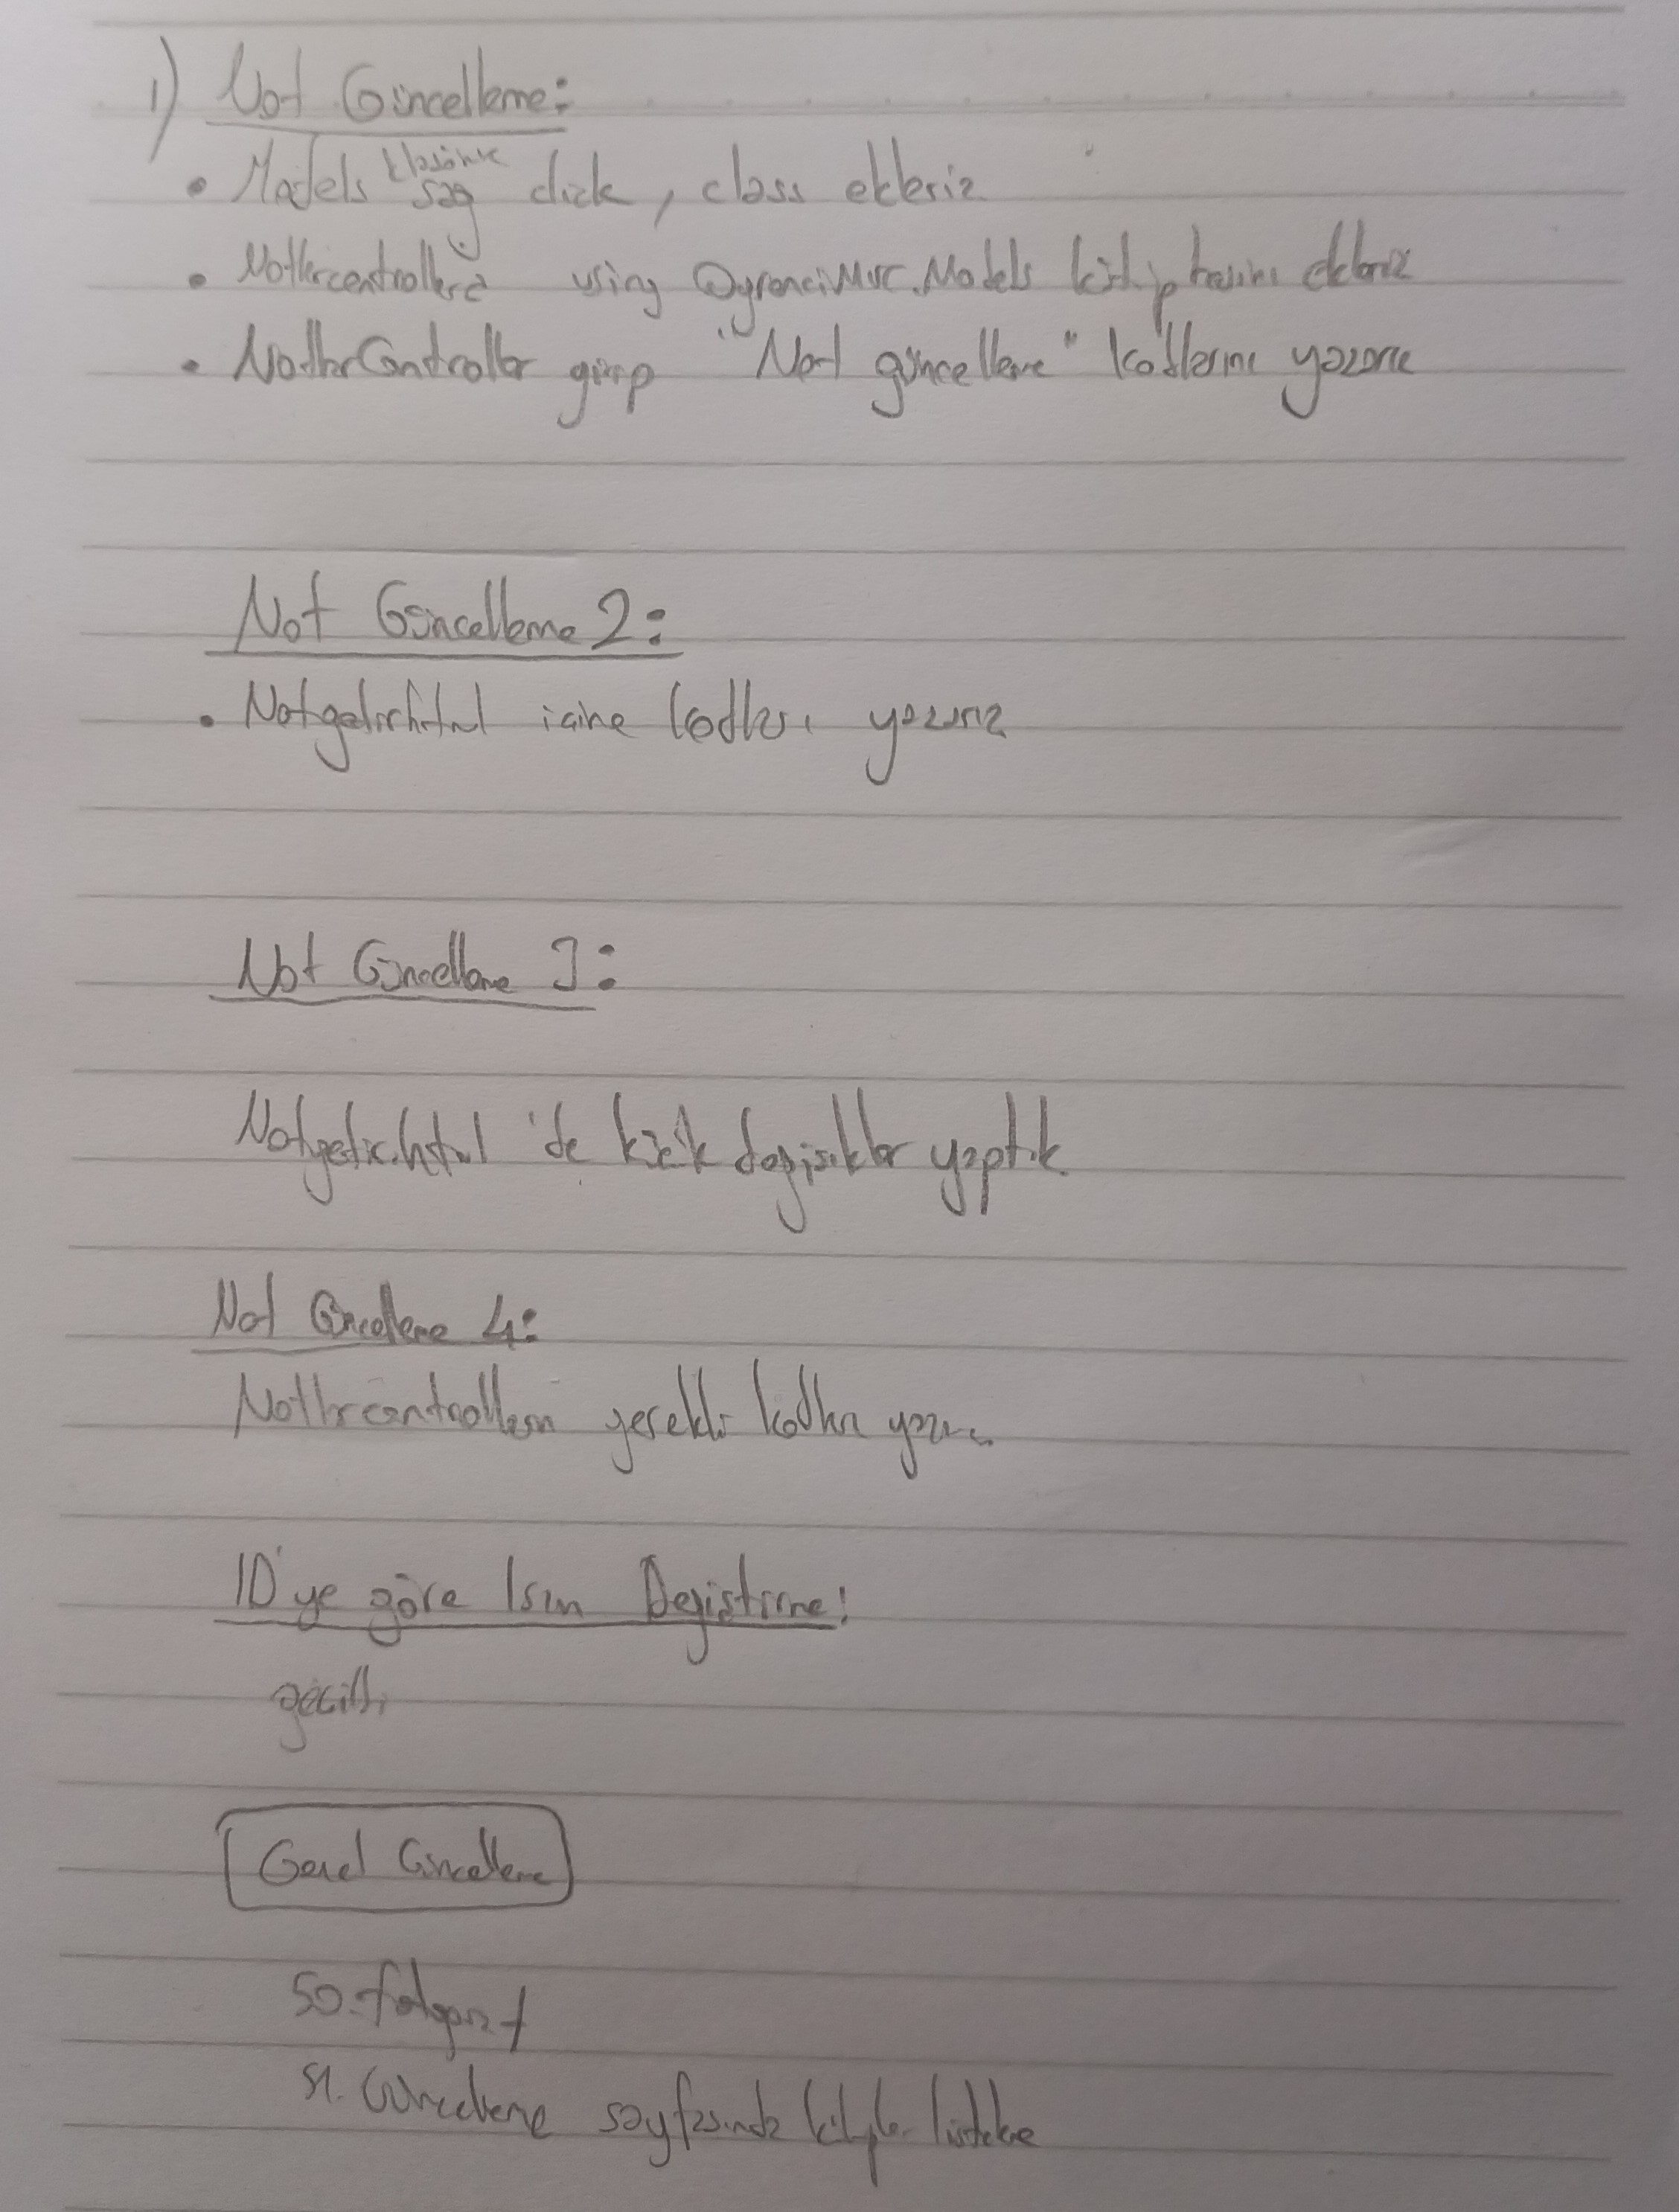 1) Not Güncelleme:
• Models klasörüne sağ click, class ekleriz
• Notlarcontrollera using OgrenciMvc.Models kütüphanesini ekleriz
• NotlarController girip "Not güncelleme" kodlarını yazarız
Not Güncelleme 2:
• Notgetir.html içine kodları yazarız
Not Güncelleme 3:
Notgetir.html 'de küçük değişiklikler yaptık
Not Güncelleme 4:
gerekli kodları yazarız
ID'ye göre Isim Degistirme:
geçildi
Genel Güncelleme
50.
51. Güncelleme sayfasında listeleme